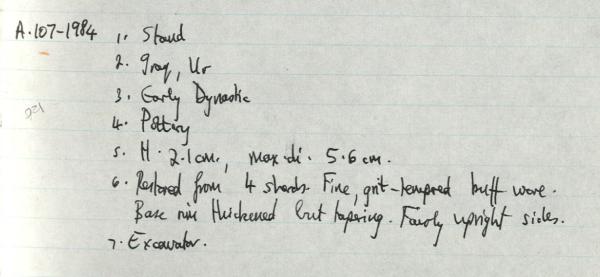 A.107-1984 1. Stand
2. Iraq, Ur
3. Early Dynastic
4. Pottery
5. H. 2.1cm, max. di. 5.6 cm.
6. Restored from 4 sherds. Fine, grit-tempered buff ware.
Base rim thickened but tapering. Fairly upright sides.
7. Excavator.